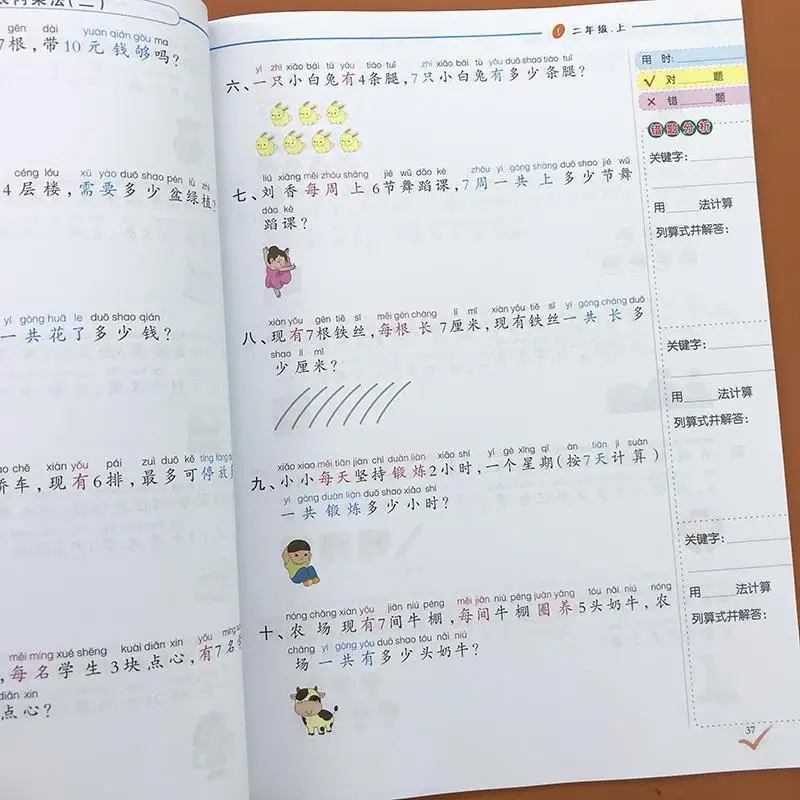 gēn dài yuán qián gòu ma
7根,带10元钱够吗?
céng lóu xū yào duō shao pén lǜ zhí
4层楼,需要多少盆绿植?
yí gòng huā le duō shao qián
一共花了多少钱?
chē xiàn yǒu pái zuì duō kě tíng fàng
车,现有6排,最多可停放
měi míng xué shēng kuài diǎn xin yǒu míng
每名学生3块点心,有7名
diǎn xin
点心?
二年级.上
yì zhī xiǎo bái tù yǒu tiáo tuǐ zhī xiǎo bái tù yǒu duō shao tiáo tuǐ
六、一只小白兔有4条腿,7只小白兔有多少条腿?
liú xiāng měi zhōu shàng jié wǔ dǎo kè zhōu yí gòng shàng duō shao jié wǔ
七、刘香每周上6节舞蹈课,7周一共上多少节舞
dǎo kè
蹈课?
xiàn yǒu gēn tiě sī měi gēn cháng lí mǐ xiàn yǒu tiě sī yí gòng cháng duō
八、现有7根铁丝,每根长7厘米,现有铁丝一共长多
shao lí mǐ
少厘米?
xiǎo xiao měi tiān jiān chí duàn liàn xiǎo shí yí gè xīng qī àn tiān jì suàn
九、小小每天坚持锻炼2小时,一个星期(按7天计算)
yí gòng duàn liàn duō shao xiǎo shí
一共锻炼多少小时?
nóng chǎng xiàn yǒu jiān niú péng měi jiān niú péng juàn yǎng tóu nǎi niú nóng
十、农场现有7间牛棚,每间牛棚圈养5头奶牛,农
chǎng yí gòng yǒu duō shao tóu nǎi niú
场一共有多少头奶牛?
用时:
✓ 对____题
✕ 错____题
错题分析
关键字:
用____法计算
列算式并解答:
关键字:
用____法计算
列算式并解答:
关键字:
用____法计算
列算式并解答:
37